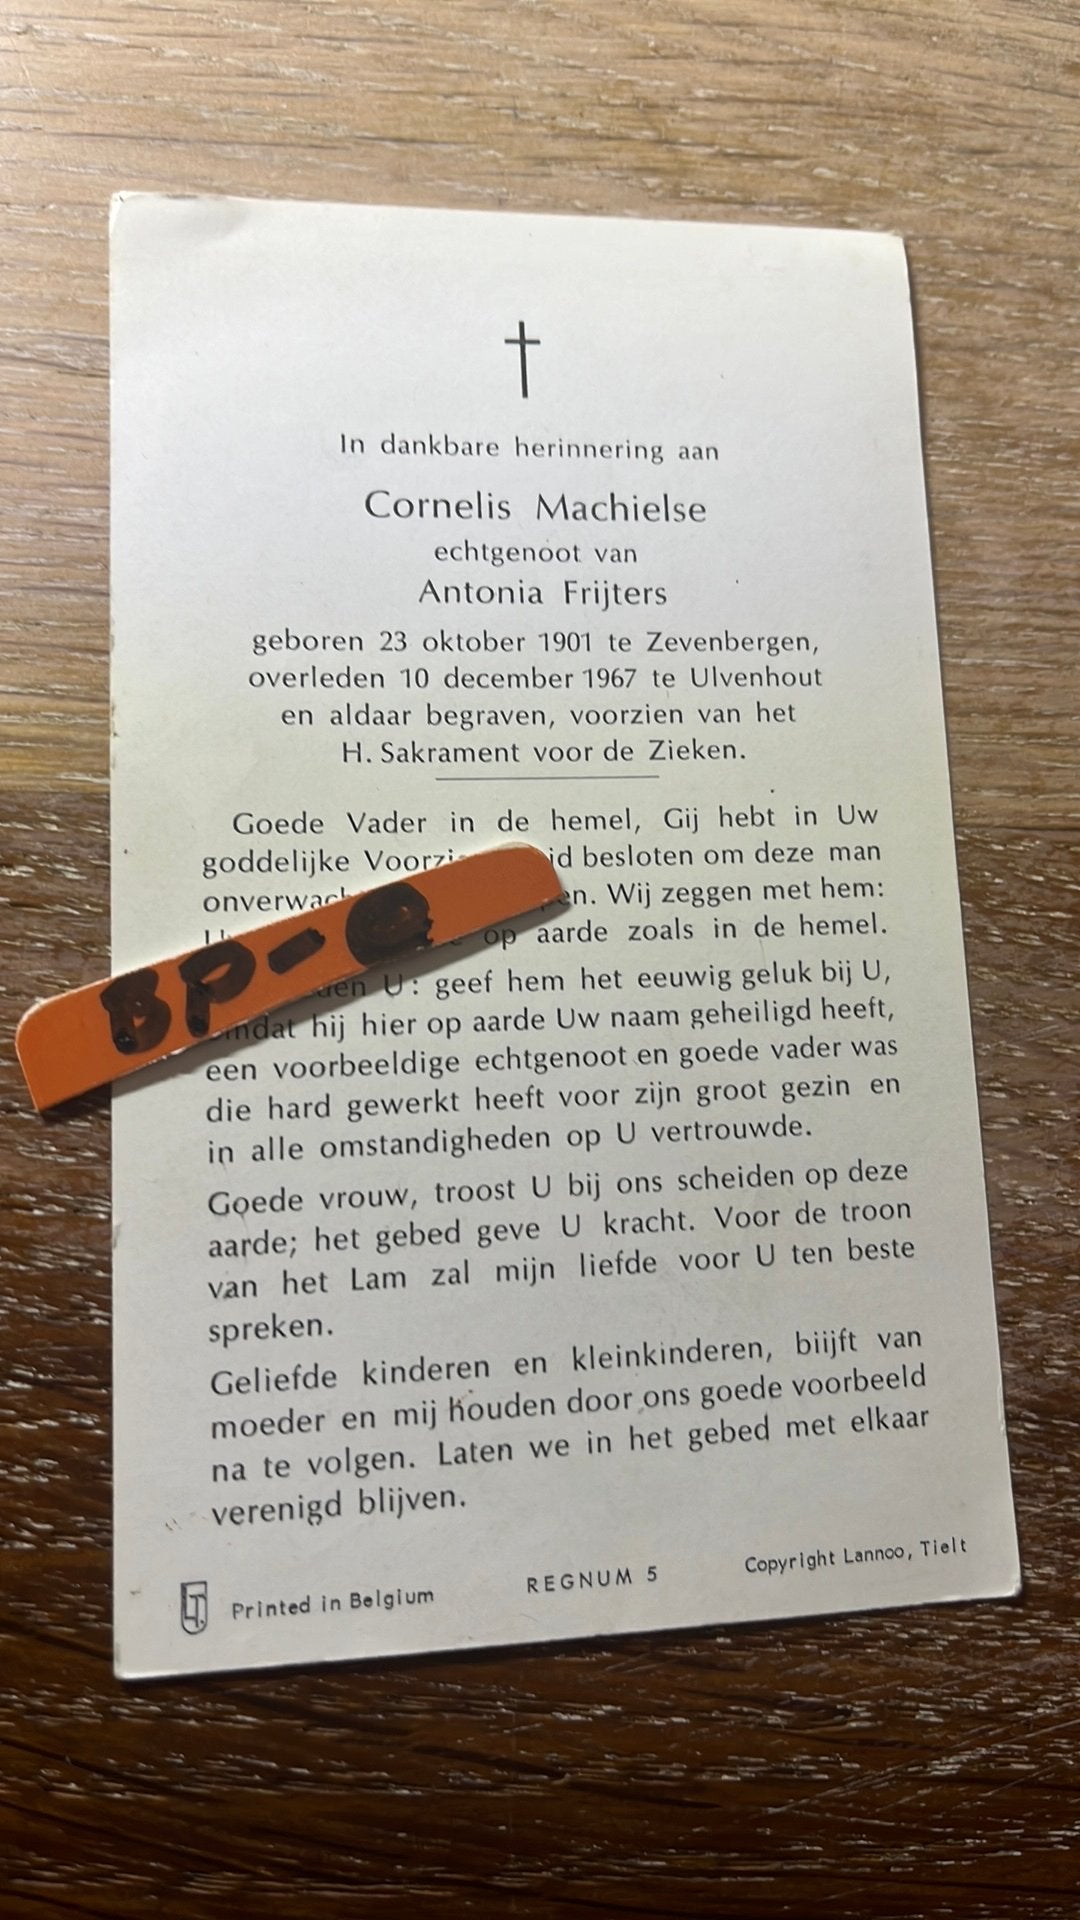 In dankbare herinnering aan
Cornelis Machielse
echtgenoot van
Antonia Frijters
geboren 23 oktober 1901 te Zevenbergen,
overleden 10 december 1967 te Ulvenhout
en aldaar begraven, voorzien van het
H. Sakrament voor de Zieken.
Goede Vader in de hemel, Gij hebt in Uw
goddelijke besloten om deze man
Wij zeggen met hem:
op aarde zoals in de hemel.
U: geef hem het eeuwig geluk bij U,
omdat hij hier op aarde Uw naam geheiligd heeft,
een voorbeeldige echtgenoot en goede vader was
die hard gewerkt heeft voor zijn groot gezin en
in alle omstandigheden op U vertrouwde.
Goede vrouw, troost U bij ons scheiden op deze
aarde; het gebed geve U kracht. Voor de troon
van het Lam zal mijn liefde voor U ten beste
spreken.
Geliefde kinderen en kleinkinderen, biijft van
moeder en mij houden door ons goede voorbeeld
na te volgen. Laten we in het gebed met elkaar
verenigd blijven.
Printed in Belgium REGNUM 5 Copyright Lannoo, Tielt